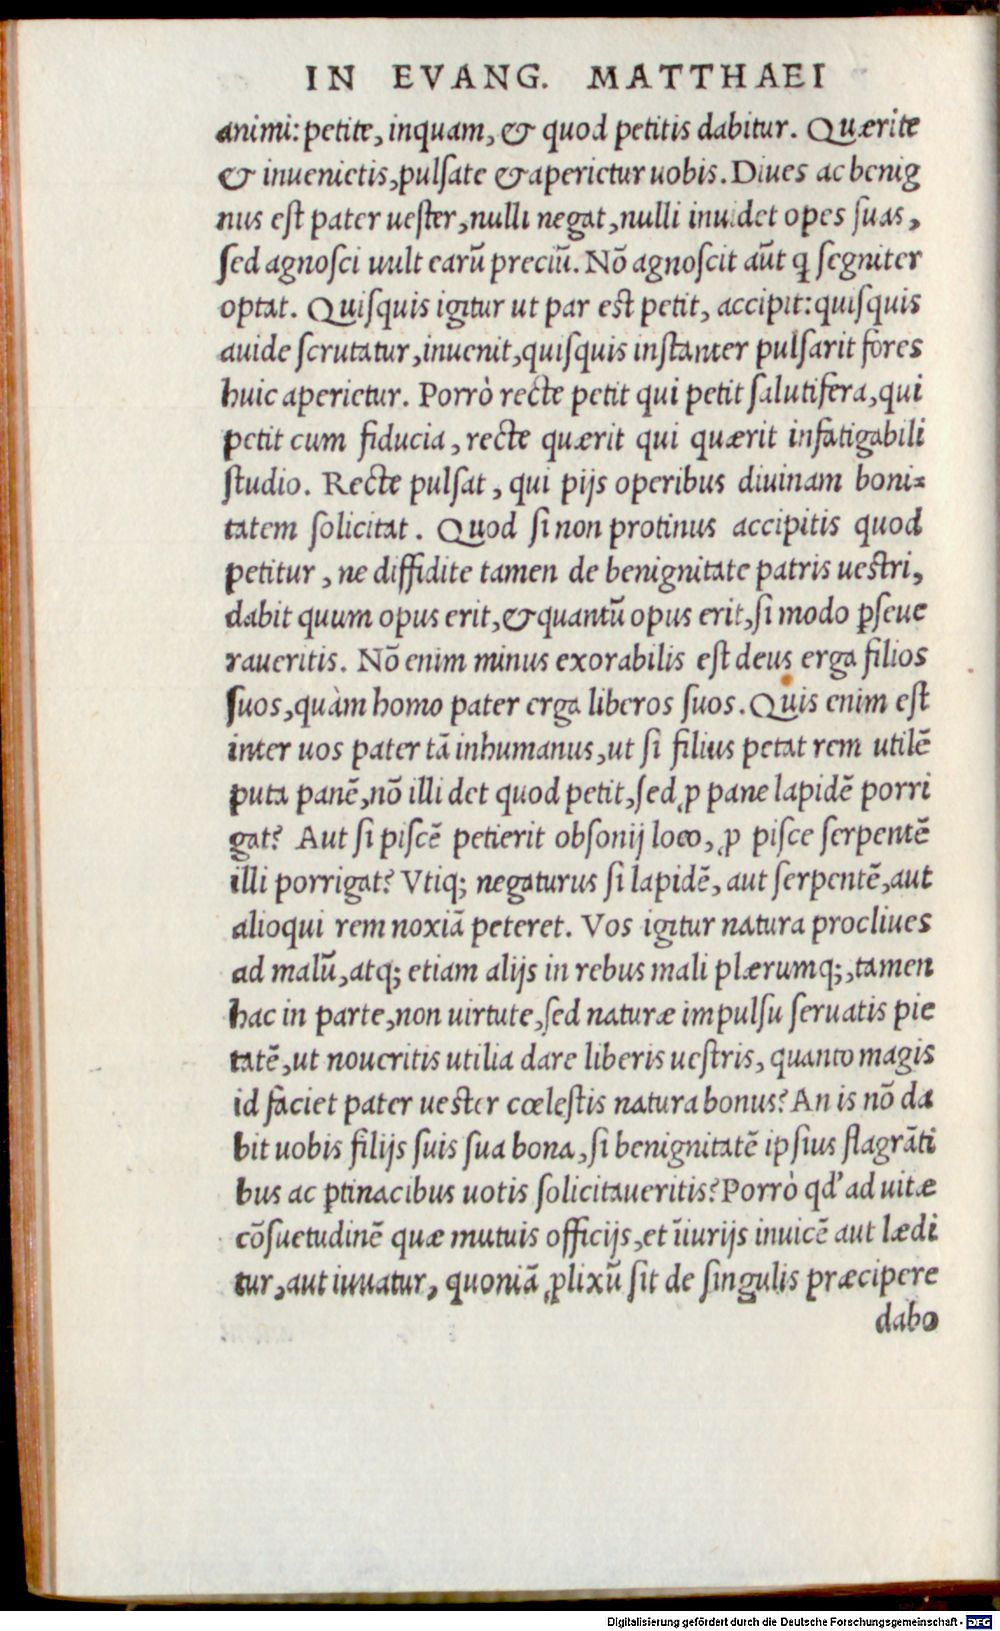 IN EVANG. MATTHAEI
animi: petite, inquam, & quod petitis dabitur. Quærite
& inuenietis, pulſate & aperietur uobis. Diues ac benig
nus eſt pater ueſter, nulli negat, nulli inuidet opes ſuas,
ſed agnoſci uult earũ preciũ. Nõ agnoſcit aũt ꝗ ſegniter
optat. Quiſquis igitur ut par eſt petit, accipit: quiſquis
auide ſcrutatur, inuenit, quiſquis inſtanter pulſarit fores
huic aperietur. Porrò recte petit qui petit ſalutifera, qui
petit cum fiducia, recte quærit qui quærit infatigabili
ſtudio. Recte pulſat, qui pijs operibus diuinam boni⸗
tatem ſolicitat. Quod ſi non protinus accipitis quod
petitur, ne diffidite tamen de benignitate patris ueſtri,
dabit quum opus erit, & quantũ opus erit, ſi modo ꝑſeue
raueritis. Nõ enim minus exorabilis eſt deus erga filios
ſuos, quàm homo pater erga liberos ſuos. Quis enim eſt
inter uos pater tã inhumanus, ut ſi filius petat rem utilẽ
puta panẽ, nõ illi det quod petit, ſed ꝓ pane lapidẽ porri
gat? Aut ſi piſcẽ petierit obſonij loco, ꝓ piſce ſerpentẽ
illi porrigat? Vtiq; negaturus ſi lapidẽ, aut ſerpentẽ, aut
alioqui rem noxiã peteret. Vos igitur natura procliues
ad malũ, atq; etiam alijs in rebus mali plærumq;, tamen
hac in parte, non uirtute, ſed naturæ impulſu ſeruatis pie
tatẽ, ut noueritis utilia dare liberis ueſtris, quanto magis
id faciet pater ueſter cœleſtis natura bonus? An is nõ da
bit uobis filijs ſuis ſua bona, ſi benignitatẽ ipſius flagrãti
bus ac ꝑtinacibus uotis ſolicitaueritis? Porrò qd' ad uitæ
cõſuetudinẽ quæ mutuis officijs, et ĩiurijs inuicẽ aut lædi
tur, aut iuuatur, quoniã ꝓlixũ ſit de ſingulis præcipere
dabo
Digitalisierung gefördert durch die Deutsche Forschungsgemeinschaft - DFG